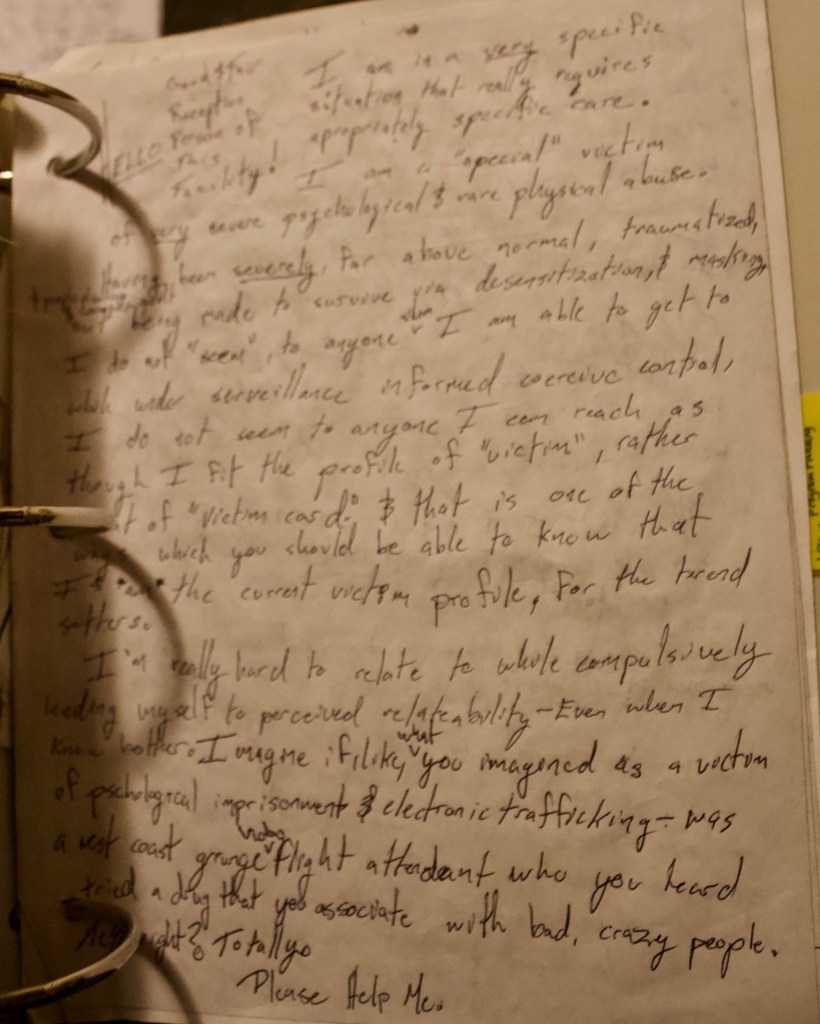 Good & Fair I am in a very specific
Reception situation that really requires
HELLO Person of apropriately specific care.
this
Facility! I am a "special" victim
of very severe psychological & rare physical abuse.
Having been severely, far above normal, traumatized,
but being made to survive via desensitization, & masking,
I do not "seem", to anyone when I am able to get to
while under surveillance informed coercive control,
I do not seem to anyone I can reach as
though I fit the profile of "victim", rather
of "victim card." & that is one of the
ways which you should be able to know that
I *am* the current victim profile, for the trend
setters.
I'm really hard to relate to while compulsively
lending myself to perceived relateability - Even when I
know better. Imagine if, like, what you imagined as a victim
of pschological imprisonment & electronic trafficking - was
a west coast grunge hobo flight attendant who you heard
tried a drug that you associate with bad, crazy people.
right? Totally.
Please Help Me.